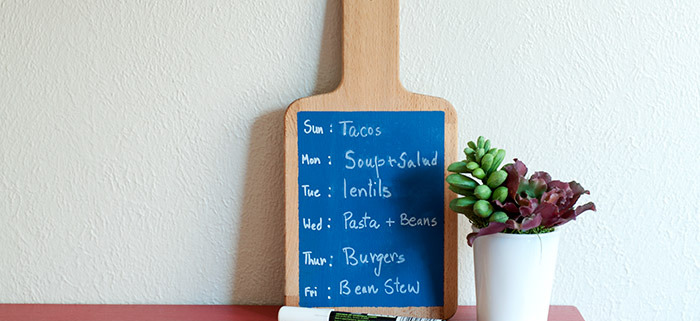 Sun : Tacos
Mon : Soup + Salad
Tue : lentils
Wed : Pasta + Beans
Thur : Burgers
Fri : Bean Stew